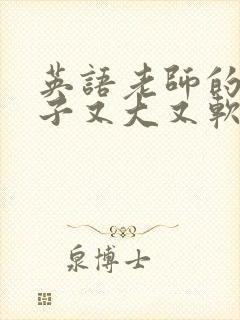 英語老師的
子又大又軟
泉博士